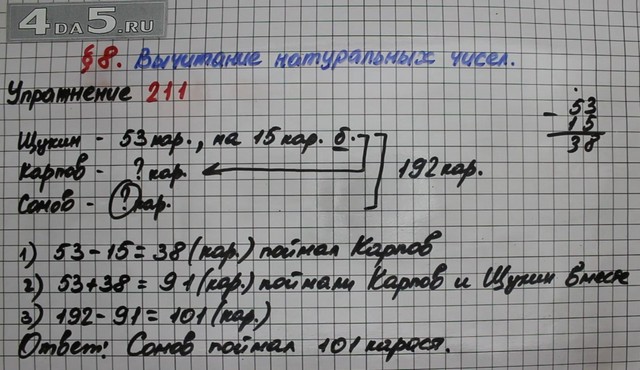 4DA5.RU
§8. Вычитание натуральных чисел.
Упражнение 211
53
- 15
38
Щукин - 53 кар., на 15 кар. б.
Карпов - ? кар.
192 кар.
Сомов - ? кар.
1) 53 - 15 = 38 (кар.) поймал Карпов
2) 53 + 38 = 91 (кар.) поймали Карпов и Щукин вместе
3) 192 - 91 = 101 (кар.)
Ответ: Сомов поймал 101 карася.